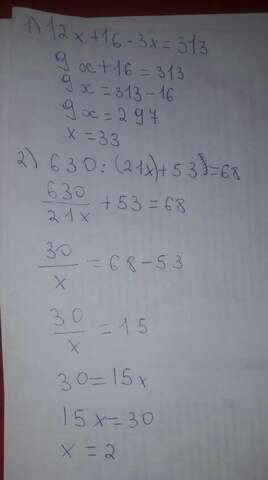 1) 12x+16-3x=313
9x+16=313
9x=313-16
9x=297
x=33
2) 630:(21x)+53=68
630
21x +53=68
30
x =68-53
30
x =15
30=15x
15x=30
x=2